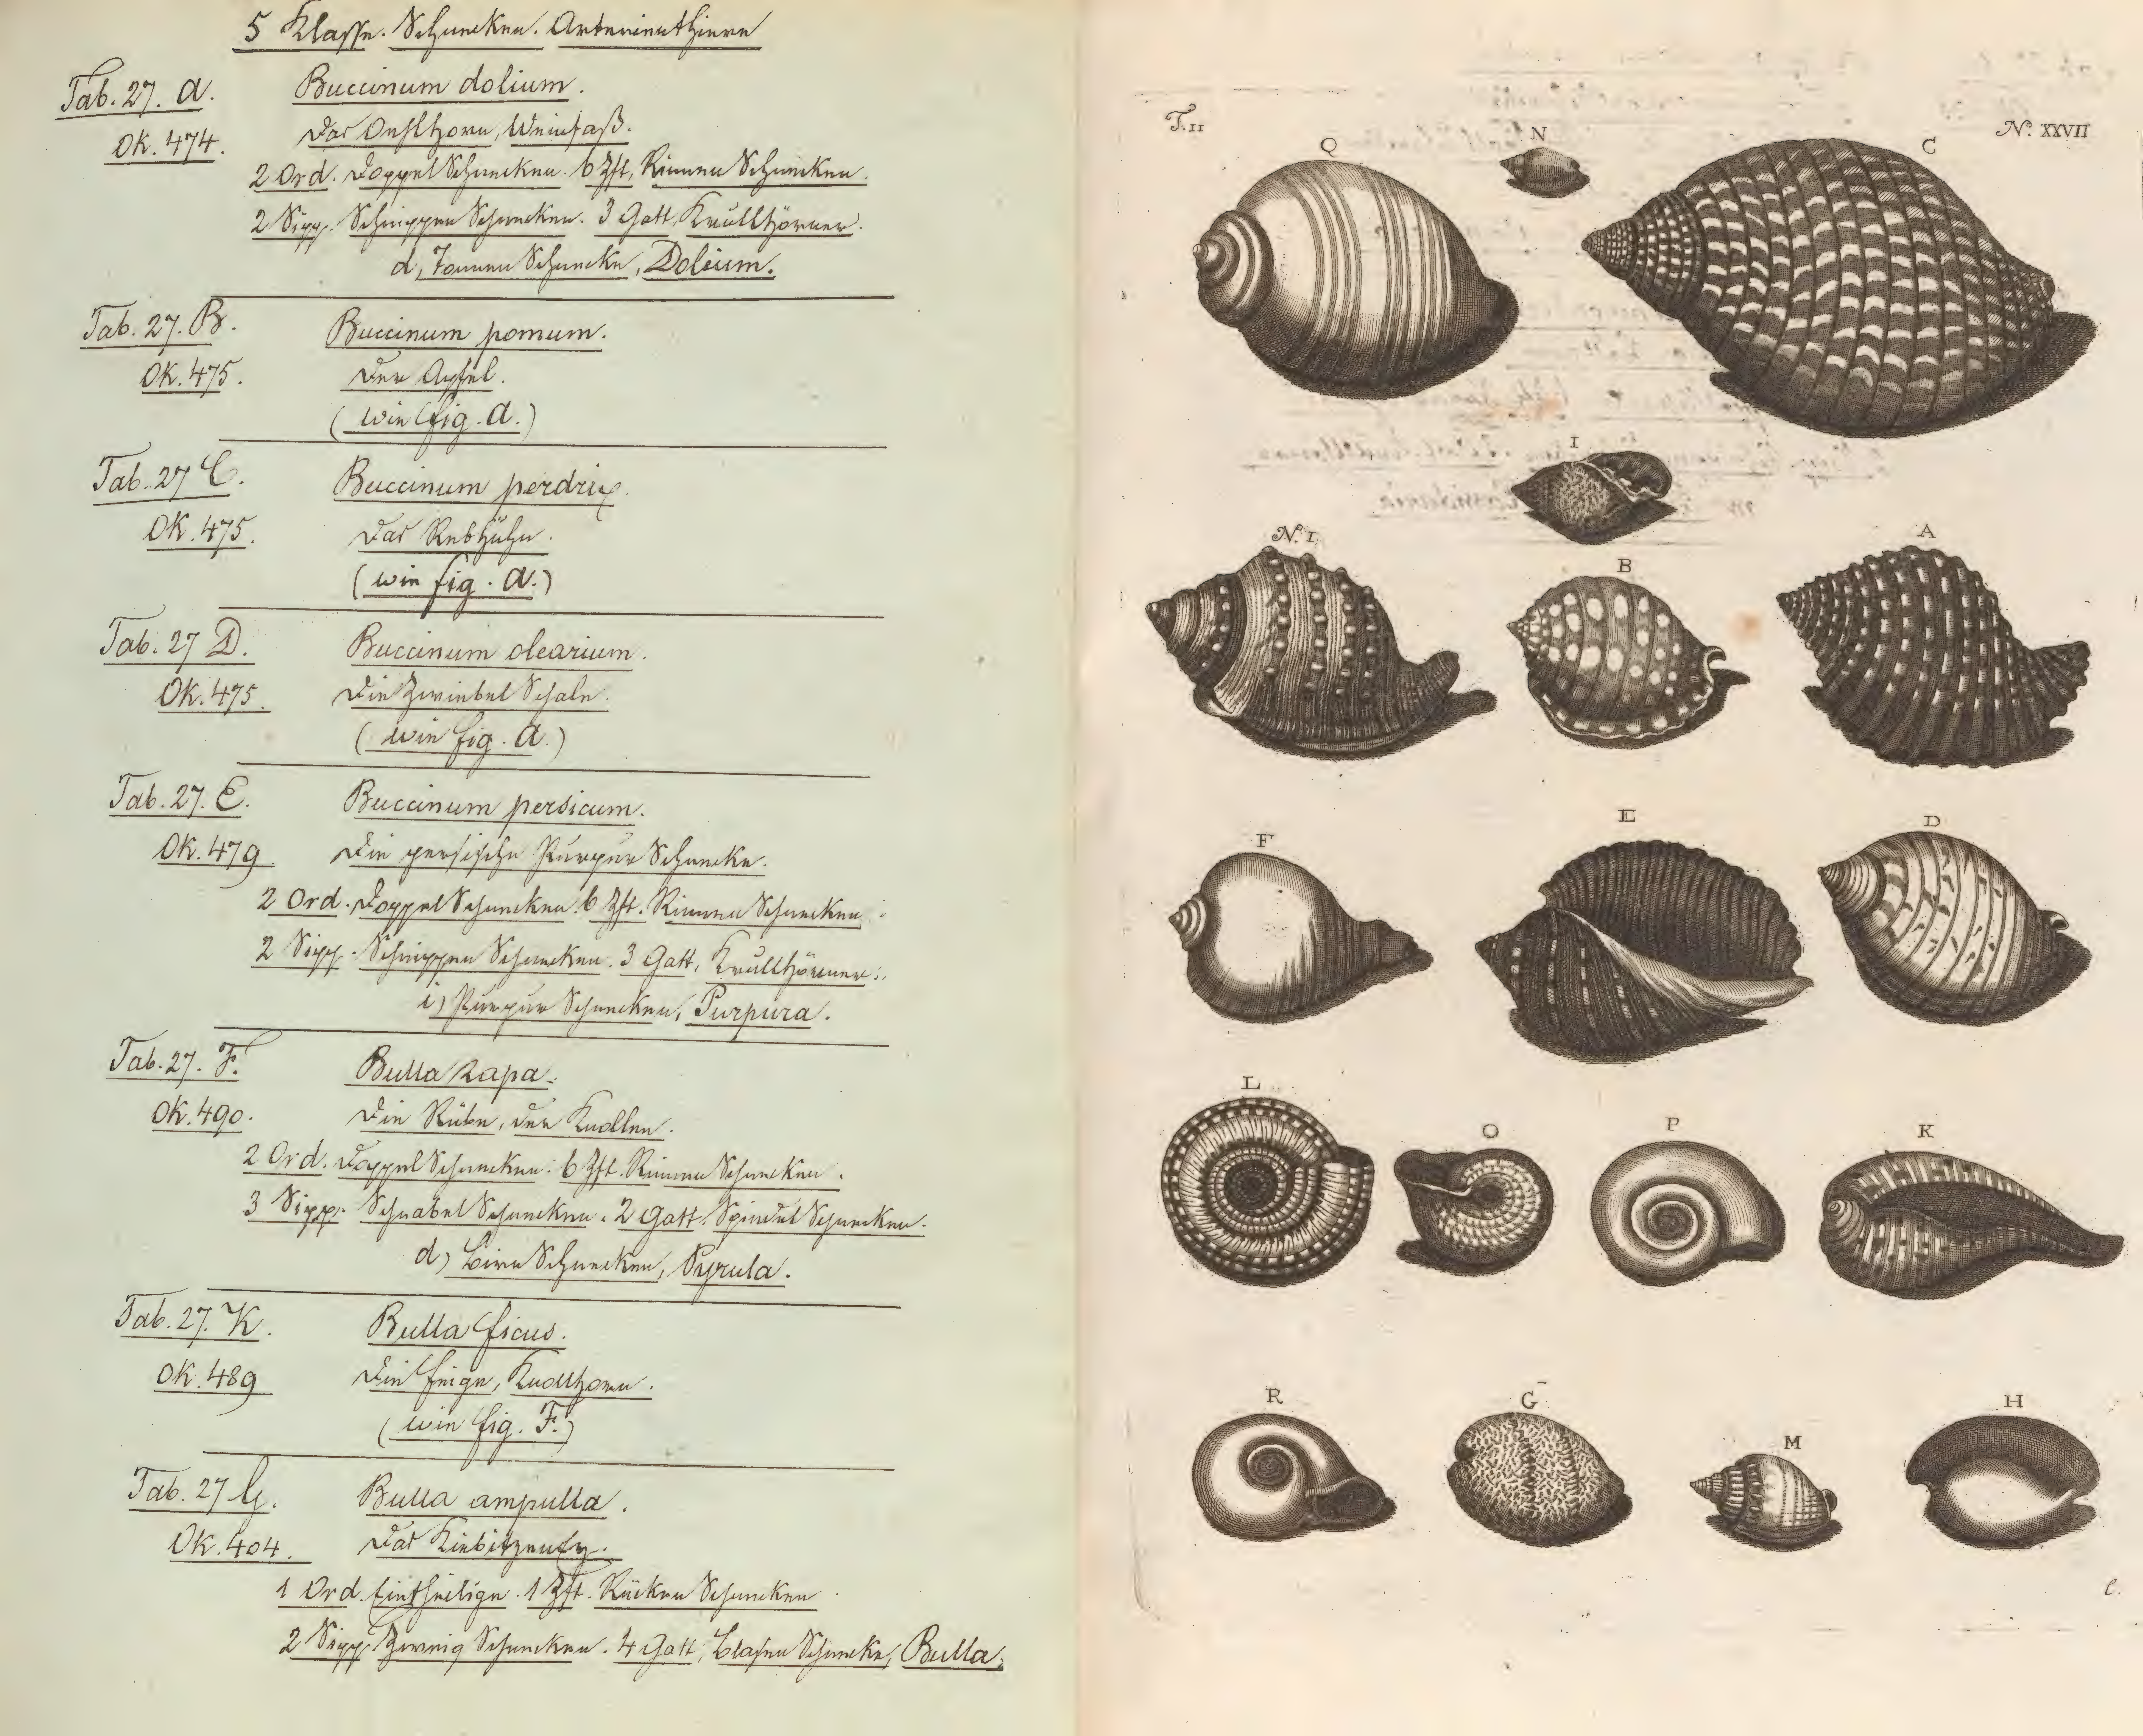 5 Klasse. Schnecken. Arterienthiere
Tab. 27. A. Buccinum dolium.
Ok. 474. Das Oehlhorn, Weinfaß.
2 Ord. Doppel Schnecken. 6 Zft. Rinnen Schnecken.
2 Sipp. Schnuppen Schnecken. 3 Gatt. Krullhörner.
d, Tonnen Schnecke, Dolium.
Tab. 27. B. Buccinum pomum.
Ok. 475. Der Apfel.
(wie fig. A.)
Tab. 27 C. Buccinum perdrix.
Ok. 475. Das Rebhühn.
(wie fig. A.)
Tab. 27 D. Buccinum olearium.
Ok. 475. Die Zwiebel Schale.
(wie fig. A.)
Tab. 27. E. Buccinum persicum.
Ok. 479 Die persische Purpur Schnecke.
2 Ord. Doppel Schnecken. 6 Zft. Rinnen Schnecken.
2 Sipp. Schnuppen Schnecken. 3 Gatt. Krullhörner.
i) Purpur Schnecken, Purpura.
Tab. 27. F. Bulla rapa.
Ok. 490. Die Rübe, der Knollen.
2 Ord. Doppel Schnecken. 6 Zft. Rinnen Schnecken.
3 Sipp. Schnabel Schnecken. 2 Gatt. Spindel Schnecken.
d) Birn Schnecken, Pyrula.
Tab. 27. K. Bulla ficus.
Ok. 489 Die Feige, Knollhorn.
(wie fig. F.)
Tab. 27 G. Bulla ampulla.
Ok. 404. Das Kiebitzeney.
1 Ord. Eintheilige. 1 Zft. Rücken Schnecken
2 Sipp. Zweig Schnecken. 4 Gatt, Blasen Schnecke, Bulla.
T. II N. XXVII
Q N C
I
N. 1. B A
F E D
L O P K
R G M H